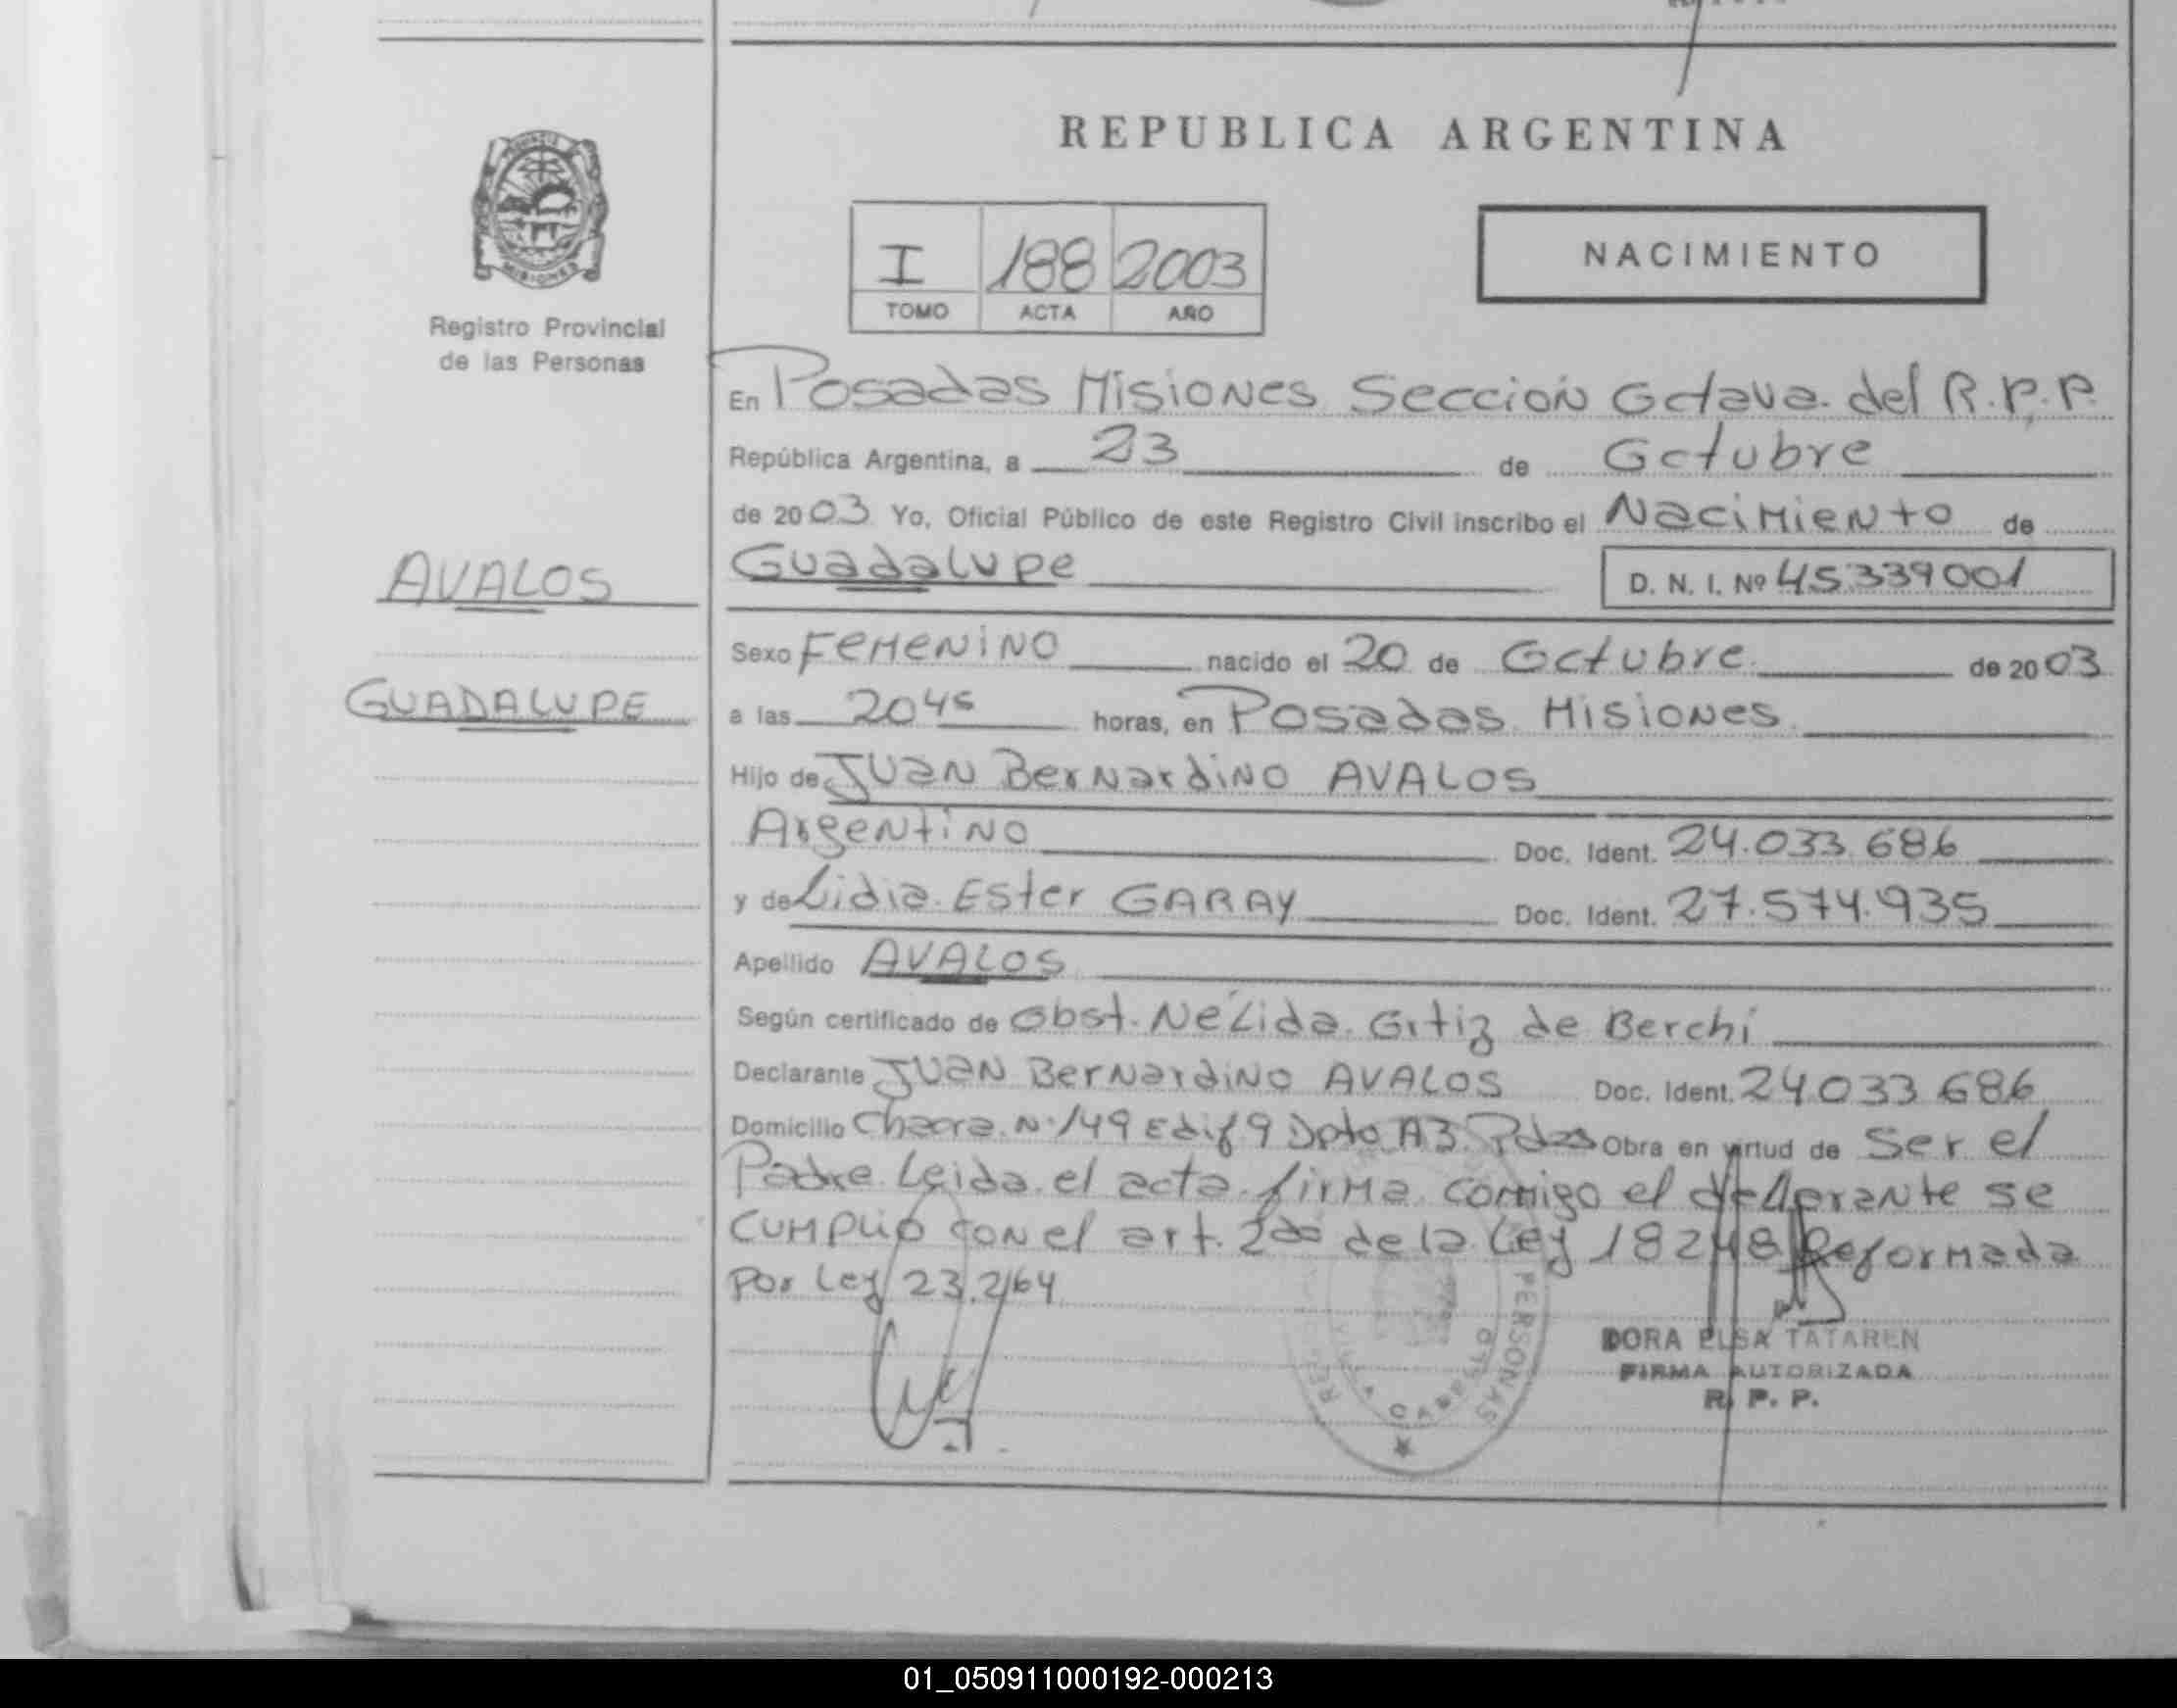 REPUBLICA ARGENTINA
I 188 2003
TOMO ACTA AÑO
NACIMIENTO
MISIONES
Registro Provincial
de las Personas
AVALOS
GUADALUPE
En Posadas Misiones Sección Octava del R.P.P.
República Argentina, a 23 de Octubre
de 2003 Yo, Oficial Público de este Registro Civil inscribo el Nacimiento de
Guadalupe D. N. I. Nº 45339001
Sexo Femenino nacido el 20 de Octubre de 2003
a las 2045 horas, en Posadas Misiones
Hijo de Juan Bernardino AVALOS
Argentino Doc. Ident. 24.033.686
y de Lidia Ester GARAY Doc. Ident. 27.574.935
Apellido AVALOS
Según certificado de Obst. Nélida Ortiz de Berchi
Declarante Juan Bernardino AVALOS Doc. Ident. 24033686
Domicilio Chacra Nº 149 Edif 9 Dpto A3 Pdas Obra en virtud de Ser el
Padre Leida el acta firma conmigo el declarante se
cumplió con el art. 2do de la Ley 18248 Reformada
Por Ley 23.264
PERSONAS
DORA ELSA TATAREN
FIRMA AUTORIZADA
R. P. P.
01_050911000192-000213